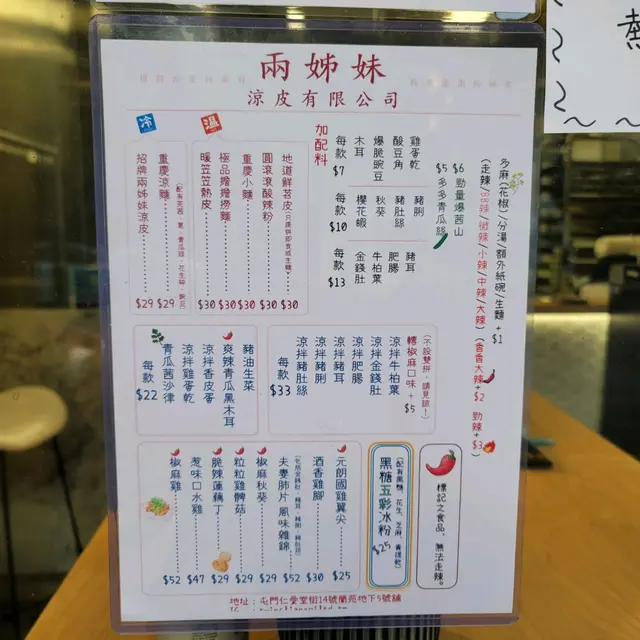 兩姊妹
涼皮有限公司
冷
招牌兩姊妹涼皮 $29
重慶涼麵 $29
溫
暖笠笠熱皮 $30
極品撈撈撈麵 $30
重慶小麵 $30
圓滾滾酸辣粉 $30
地道鮮苕皮 $30
加配料
每款 $7
木耳
爆脆豌豆
酸豆角
雞蛋乾
每款 $10
櫻花蝦
秋葵
豬肚絲
豬脷
每款 $13
金錢肚
牛柏葉
肥腸
豬耳
$5 多多青瓜絲
$6 勁量爆茜
多麻(花椒)/分湯/額外紙碗/生麵 + $1
(走辣/BB辣/微辣/小辣/中辣/大辣)
(香香大辣 + $2 勁辣 + $3)
每款 $22
青瓜茜沙律
涼拌雞蛋乾
涼拌香皮蛋
爽辣青瓜黑木耳
豬油生菜
每款 $33
涼拌豬肚絲
涼拌豬脷
涼拌豬耳
涼拌肥腸
涼拌金錢肚
涼拌牛柏葉
轉椒麻口味 + $5
(不設雙拼,請見諒!)
椒麻雞 $52
惹味口水雞 $47
脆辣蓮藕丁 $29
粒粒雞髀菇 $29
椒麻秋葵 $29
夫妻肺片風味雜錦 $52
酒香雞腳 $30
元朗國雞翼尖 $25
黑糖五彩冰粉 $25
標記之食品,無法走辣。
地址: 屯門仁愛堂街14號蘭苑地下5號舖